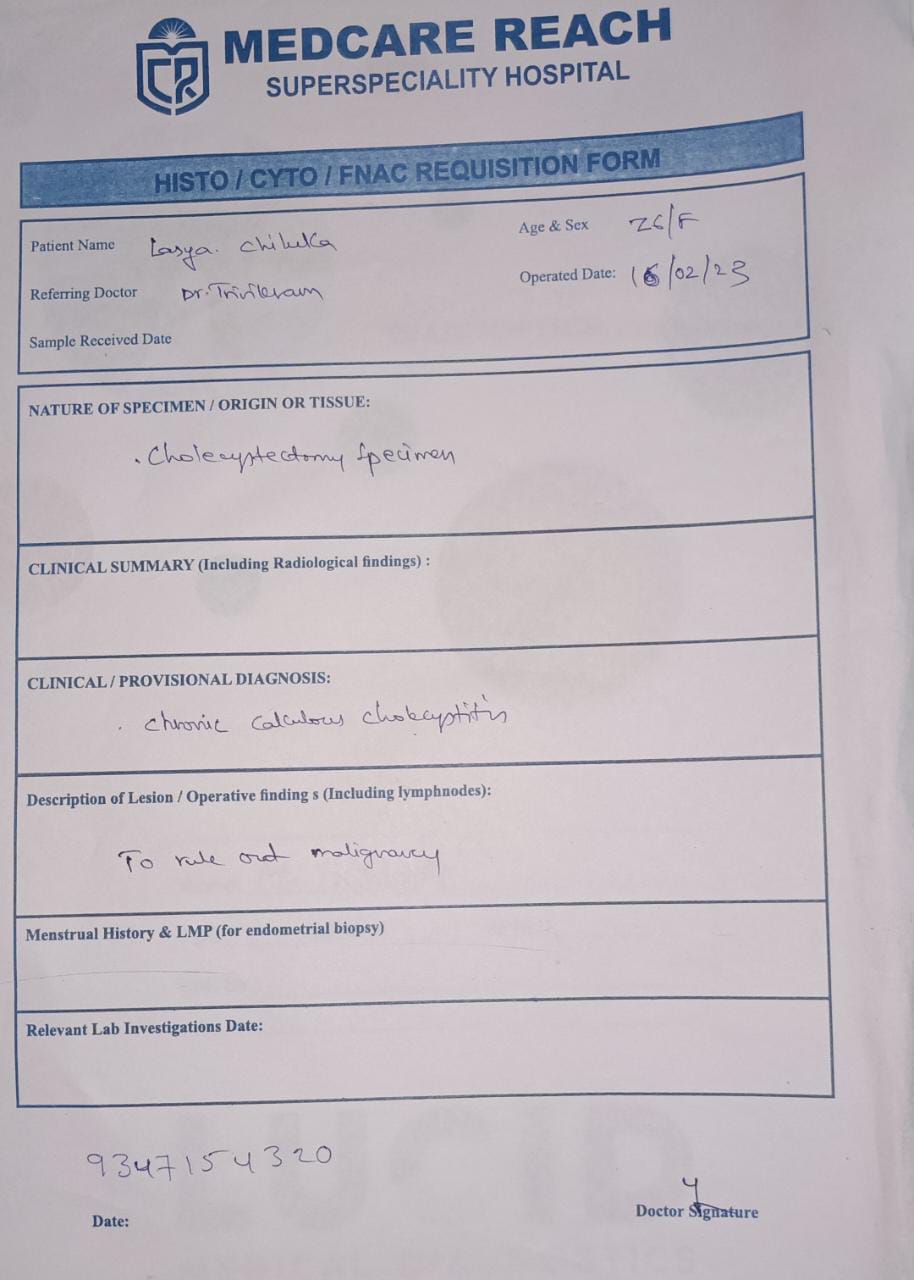 MEDCARE REACH
SUPERSPECIALITY HOSPITAL
HISTO / CYTO / FNAC REQUISITION FORM
Patient Name Lasya. Chiluka
Age & Sex 26/F
Referring Doctor Dr. Trivikram
Operated Date: 16/02/23
Sample Received Date
NATURE OF SPECIMEN / ORIGIN OR TISSUE:
. Cholecystectomy Specimen
CLINICAL SUMMARY (Including Radiological findings) :
CLINICAL / PROVISIONAL DIAGNOSIS:
. Chronic calculous cholecystitis
Description of Lesion / Operative finding s (Including lymphnodes):
To rule out malignancy
Menstrual History & LMP (for endometrial biopsy)
Relevant Lab Investigations Date:
9347154320
Date:
Doctor Signature